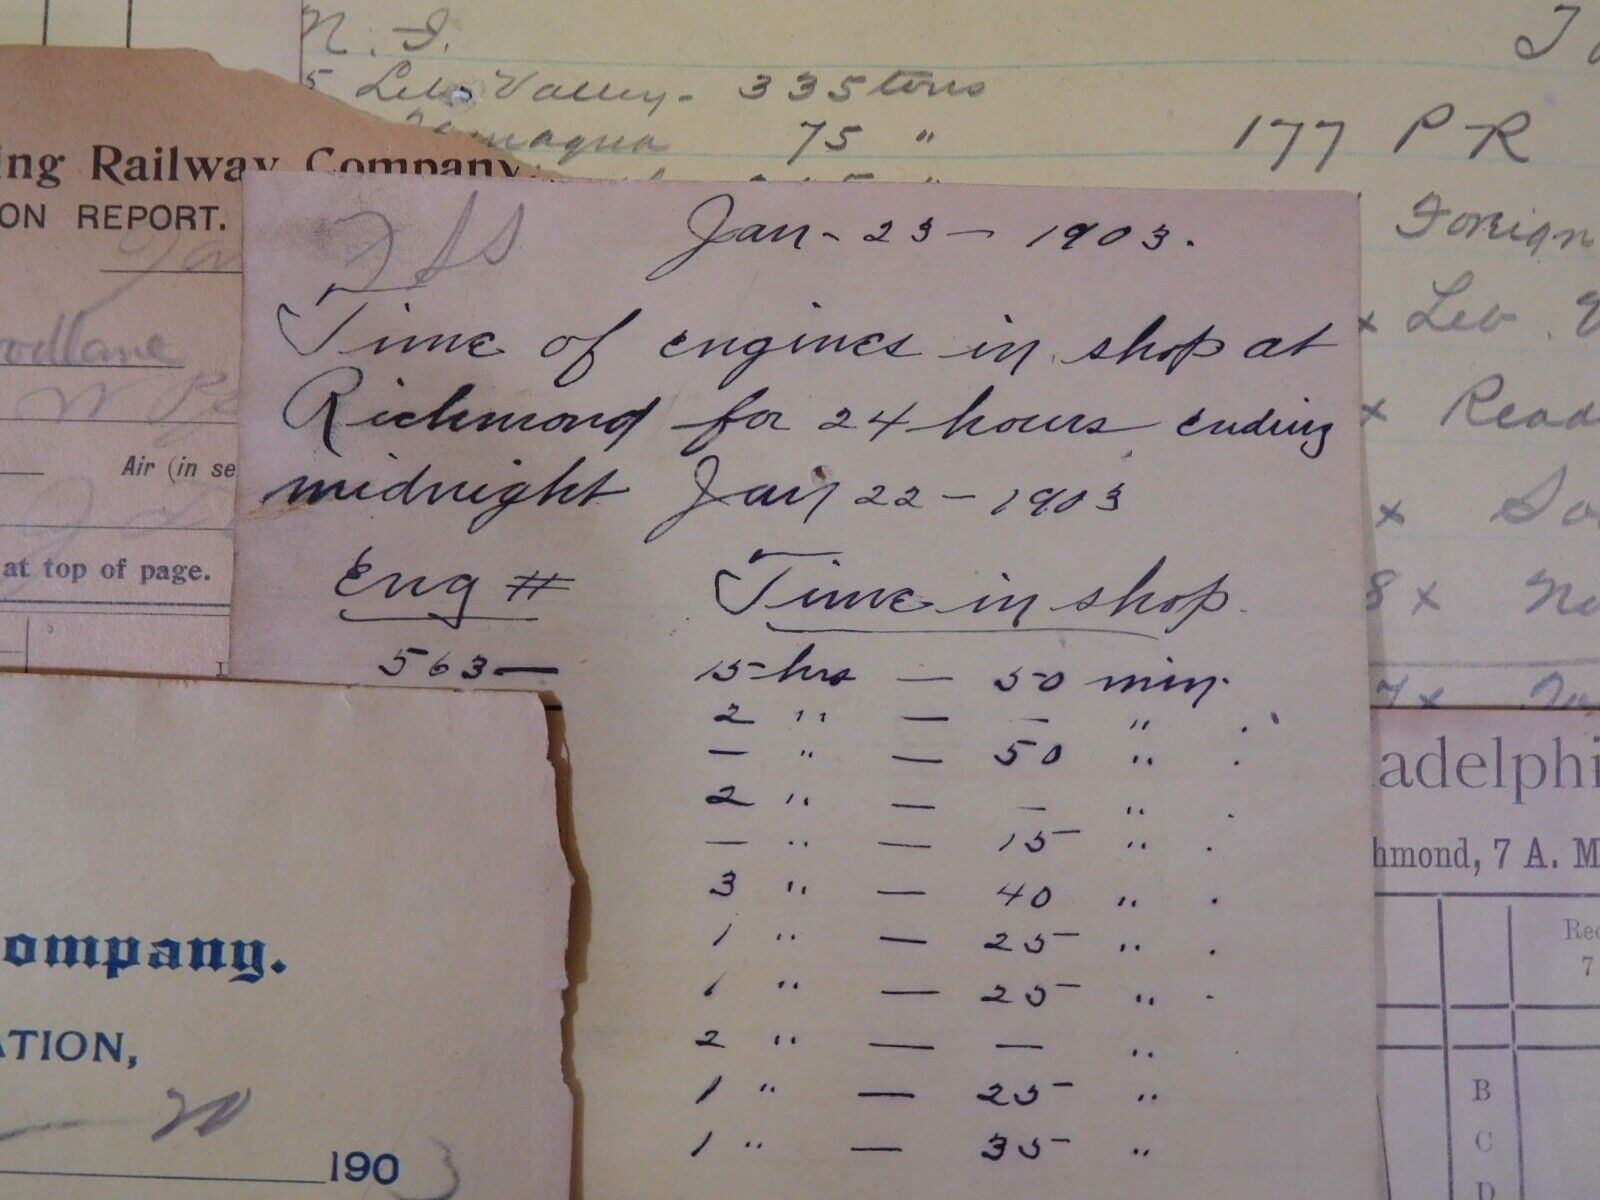 N. J.
5 Leb. Valley - 335 tons
Tamaqua 75 "
T
177 P R
Foreign
x Leb. V
x Read
x So
8 x No
7 x
ing Railway Company.
ION REPORT.
Air (in se
at top of page.
Jan - 23 - 1903.
Time of engines in shop at
Richmond for 24 hours ending
midnight Jan 22 - 1903
Eng # Time in shop.
563 — 15 hrs — 50 min.
2 " — — " .
— " — 50 " .
2 " — — " .
— " — 15 " .
3 " — 40 " .
1 " — 25 " .
1 " — 25 " .
2 " — — "
1 " — 25 "
1 " — 35 "
ompany.
ATION,
20
1903
adelphi
hmond, 7 A. M
Rec
7
B
C
D